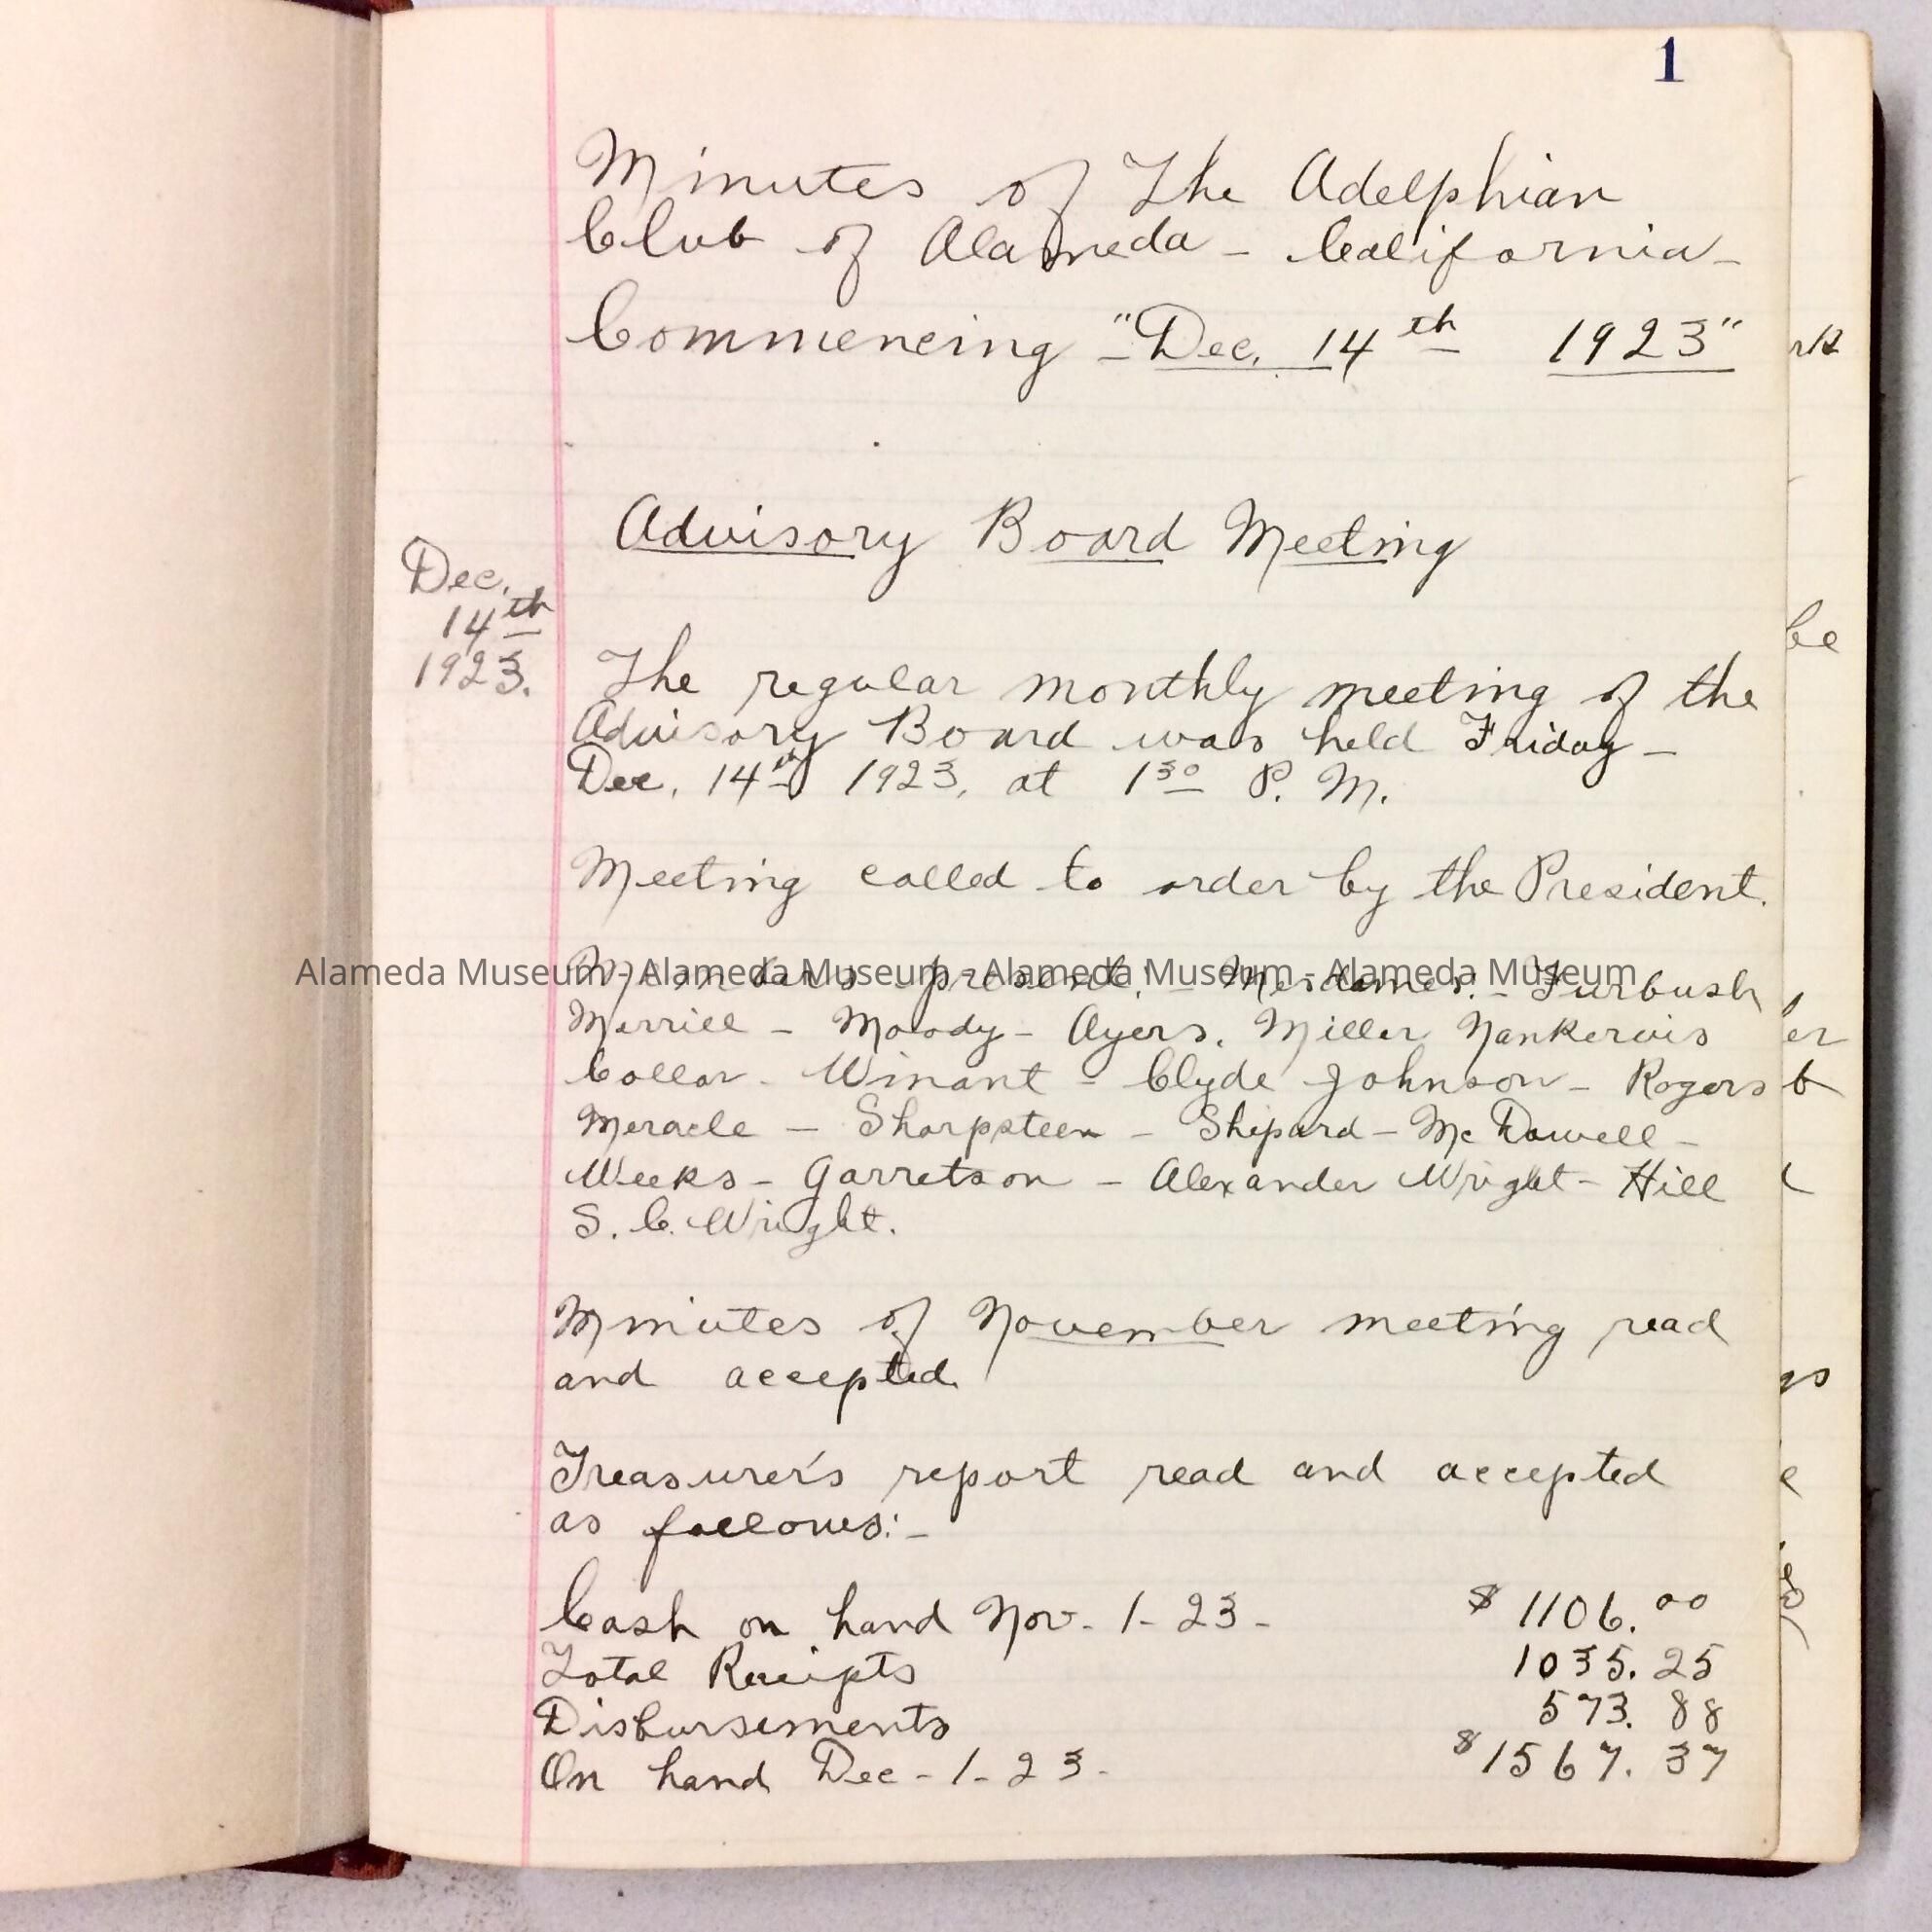 1
Minutes of The Adelphian
Club of Alameda - California -
Commencing "Dec. 14th 1923"
Advisory Board Meeting
Dec.
14th
1923.
The regular monthly meeting of the
Advisory Board was held Friday -
Dec. 14th 1923, at 1 30 P. M.
Meeting called to order by the President.
Members present: - Mesdames: - Furbush
Alameda Museum - Alameda Museum - Alameda Museum - Alameda Museum
Merrill - Moody - Ayers. Miller Nankervis
Collar - Winant - Clyde Johnson - Rogers
Meracle - Sharpsteen - Shepard - Mc Dowell -
Weeks - Garretson - Alexander Wright - Hill
S. C. Wright.
Minutes of November meeting read
and accepted
Treasurer's report read and accepted
as follows: -
Cash on hand Nov - 1 - 23 - $ 1106.00
Total Receipts 1035.25
Disbursements 573.88
On hand Dec - 1 - 23 - $1567.37